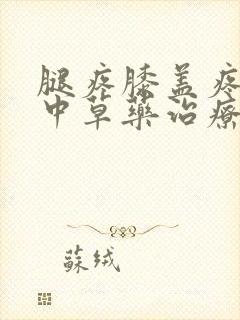 腿疼膝盖疼
中草藥治療
蘇绒